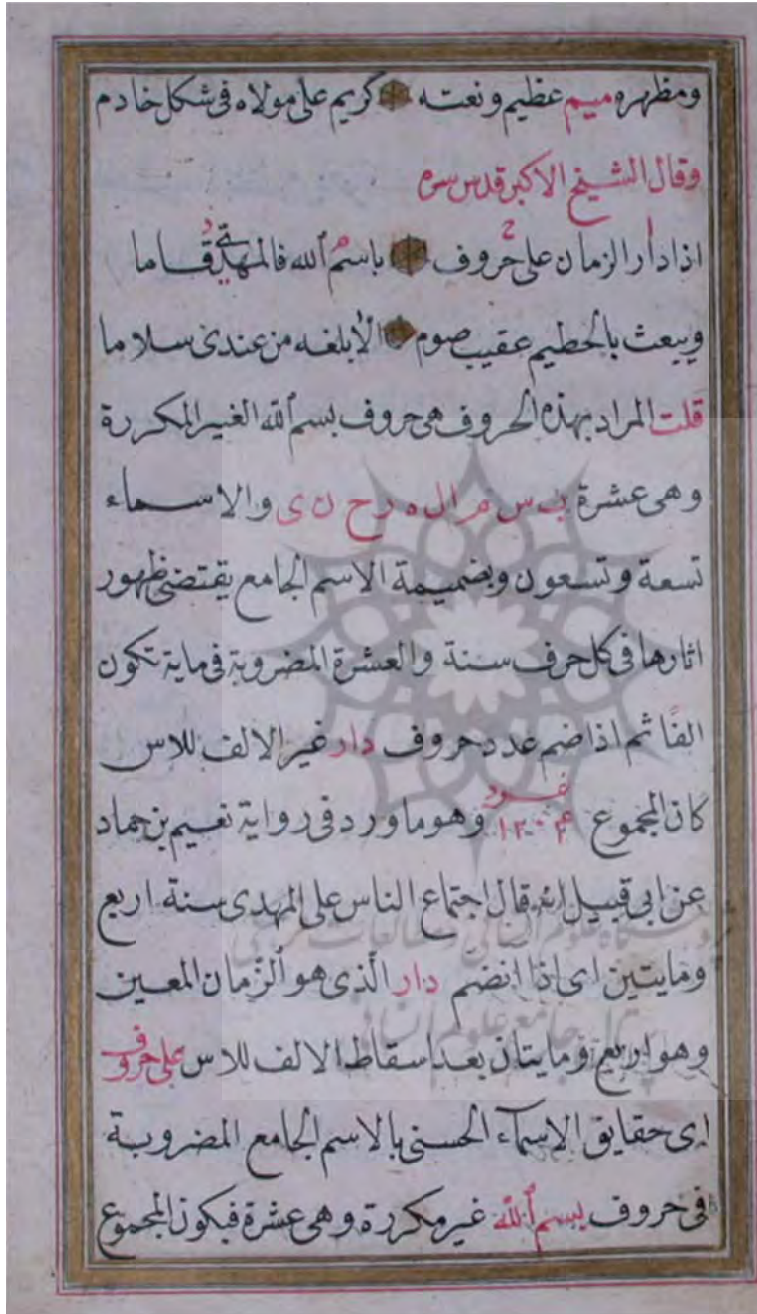 ومظهره ميم عظيم ونعته كريم على مولاه فى شكل خادم
وقال الشيخ الاكبر قدس سره
اذا دار الزمان على حروف باسم الله فالمهدى قاما
ويبعث بالحطيم عقيب صوم الا بلغه من عندى سلاما
قلت المراد بهذه الحروف هى حروف بسم الله الغير المكررة
وهى عشرة ب س م ا ل ه ر ح ن ى والاسماء
تسعة وتسعون وبضميمة الاسم الجامع يقتضى ظهور
اثارها فى كل حرف سنة والعشرة المضروبة فى ماية تكون
الفًا ثم اذا ضم عدد حروف دار غير الالف للاس
كان المجموع ١٢٠٤ وهو ما ورد فى رواية نعيم بن حماد
عن ابى قبيل انه قال اجتماع الناس على المهدى سنة اربع
ومايتين اى اذا انضم دار الذى هو الزمان المعين
وهو اربع ومايتان بعد اسقاط الالف للاس على حروف
اى حقايق الاسماء الحسنى بالاسم الجامع المضروبة
فى حروف بسم الله غير مكررة وهى عشرة فيكون المجموع